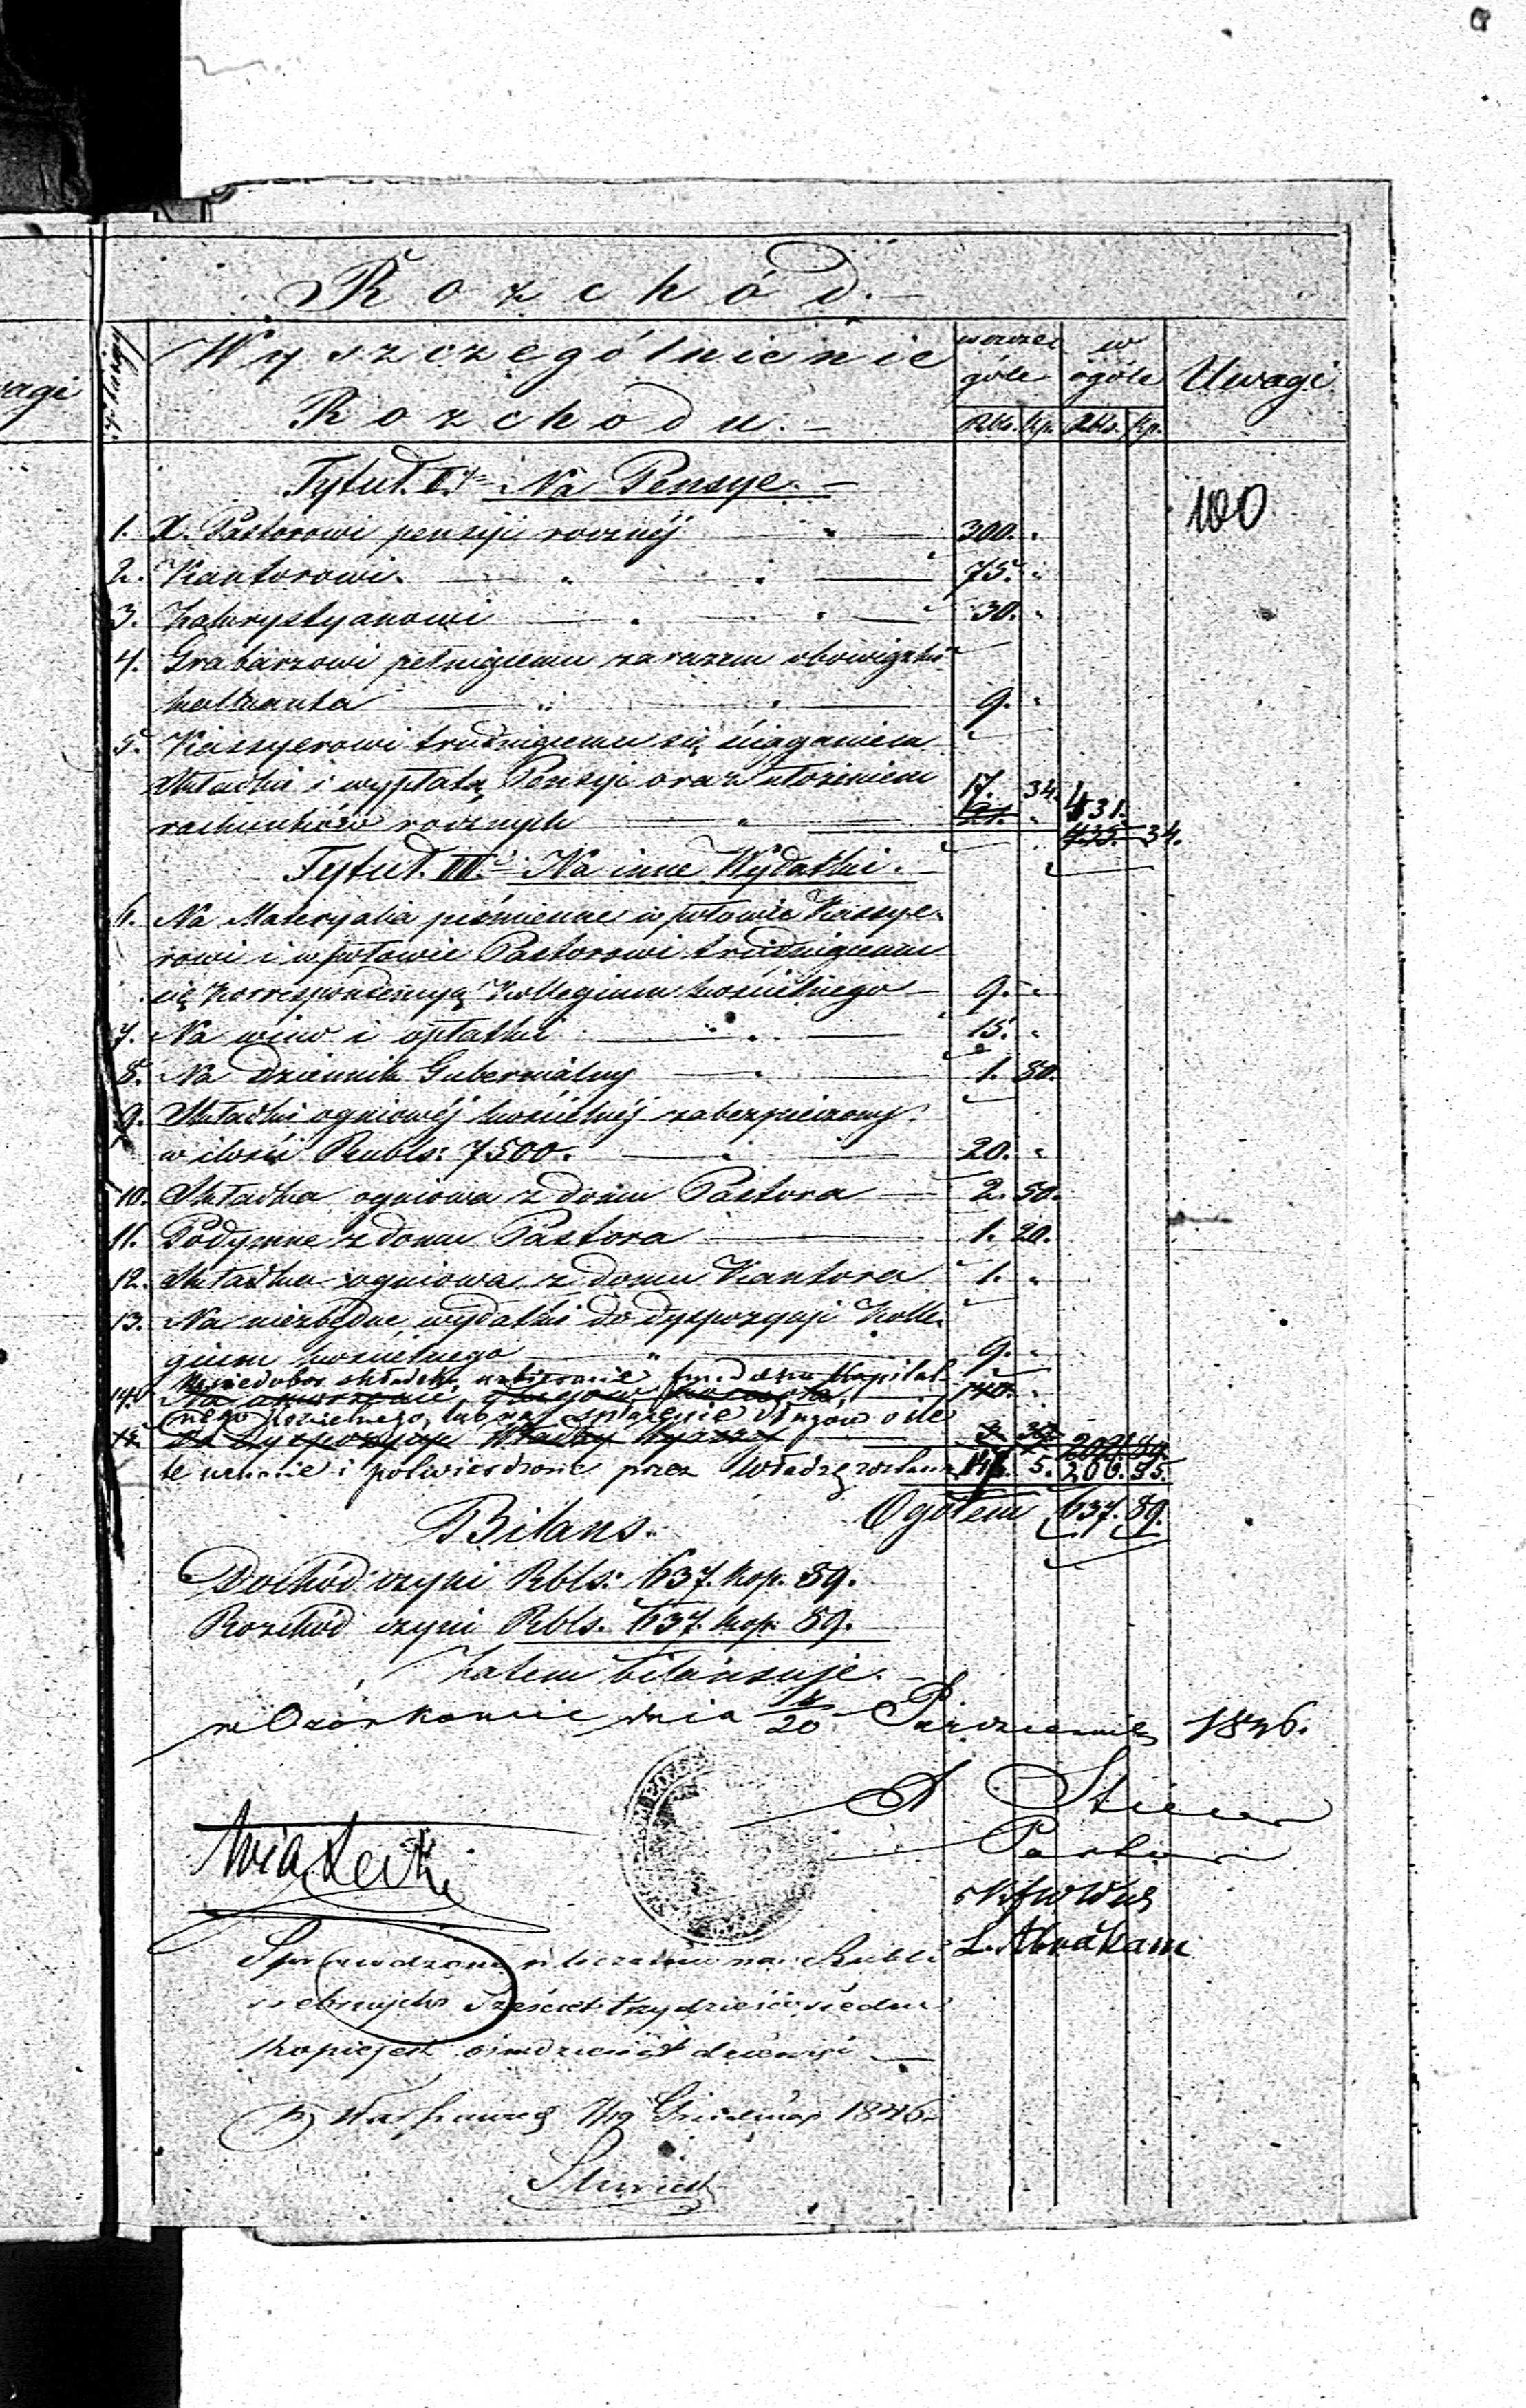 Rozchód.
vagi
Wyszczególnienie
Rozchodu.
w szcze
góle
w
ogóle
Uwagi
Rbs. kp. Rbs. kp.
Tytuł II. Na Pensye.
100
1. X. Pastorowi pensyi rocznéj " 300. "
2. Kantorowi " " 75. "
3. Zakrystyanowi " " 30. "
4. Grabarzowi pełniącemu zarazem obowiązki
kalkanta " " 9. "
5. Kassyerowi trudniącemu się ściąganiem
Składki i wypłatą Pensyi oraz ułożeniem 17. 34.
rachunków rocznych " 431. 34.
Tytuł III. Na inne Wydatki.
6. Na Materyalia piśmienne w połowie Kassye-
rowi i w połowie Pastorowi trudniącemu
się korrespondencyą Kollegium kościelnego 9. "
7. Na wino i opłatki " 15. "
8. Na Dziennik Gubernialny " 1. 80.
9. Składki ogniowéj kościelnéj zabezpieczonej
w ilości Rubls: 7500. " 20. "
10. Składka ogniowa z domu Pastora 2. 50.
11. Podymne z domu Pastora 1. 20.
12. Składka ogniowa z domu Kantora 1. "
13. Na niezbędne wydatki do dyspozycyi Kolle-
gium kościelnego " 9. "
14. Na niedobor składek uzbieranie funduszu Kapital-
140. "
nego kościelnego, lub na spłacenie długów o ile
Do dyspozycyi Władzy Wyższej
te uznane i potwierdzone przez Władzę zostaną 147. 5. 206. 55.
Ogółem 637. 89.
Bilans.
Dochód czyni Rbls: 637. kop. 89.
Rozchód czyni Rbls. 637. kop. 89.
Zatem bilansuje.
w Ozorkowie dnia 20 Października 1846.
Pastor
L. Abraham
Sprawdzono i obliczono na Rubli
srebrnych Sześćset trzydzieści siedm
Kopiejek ośmdziesiąt dziewięć
w Warszawie 7/19 Grudnia 1846.